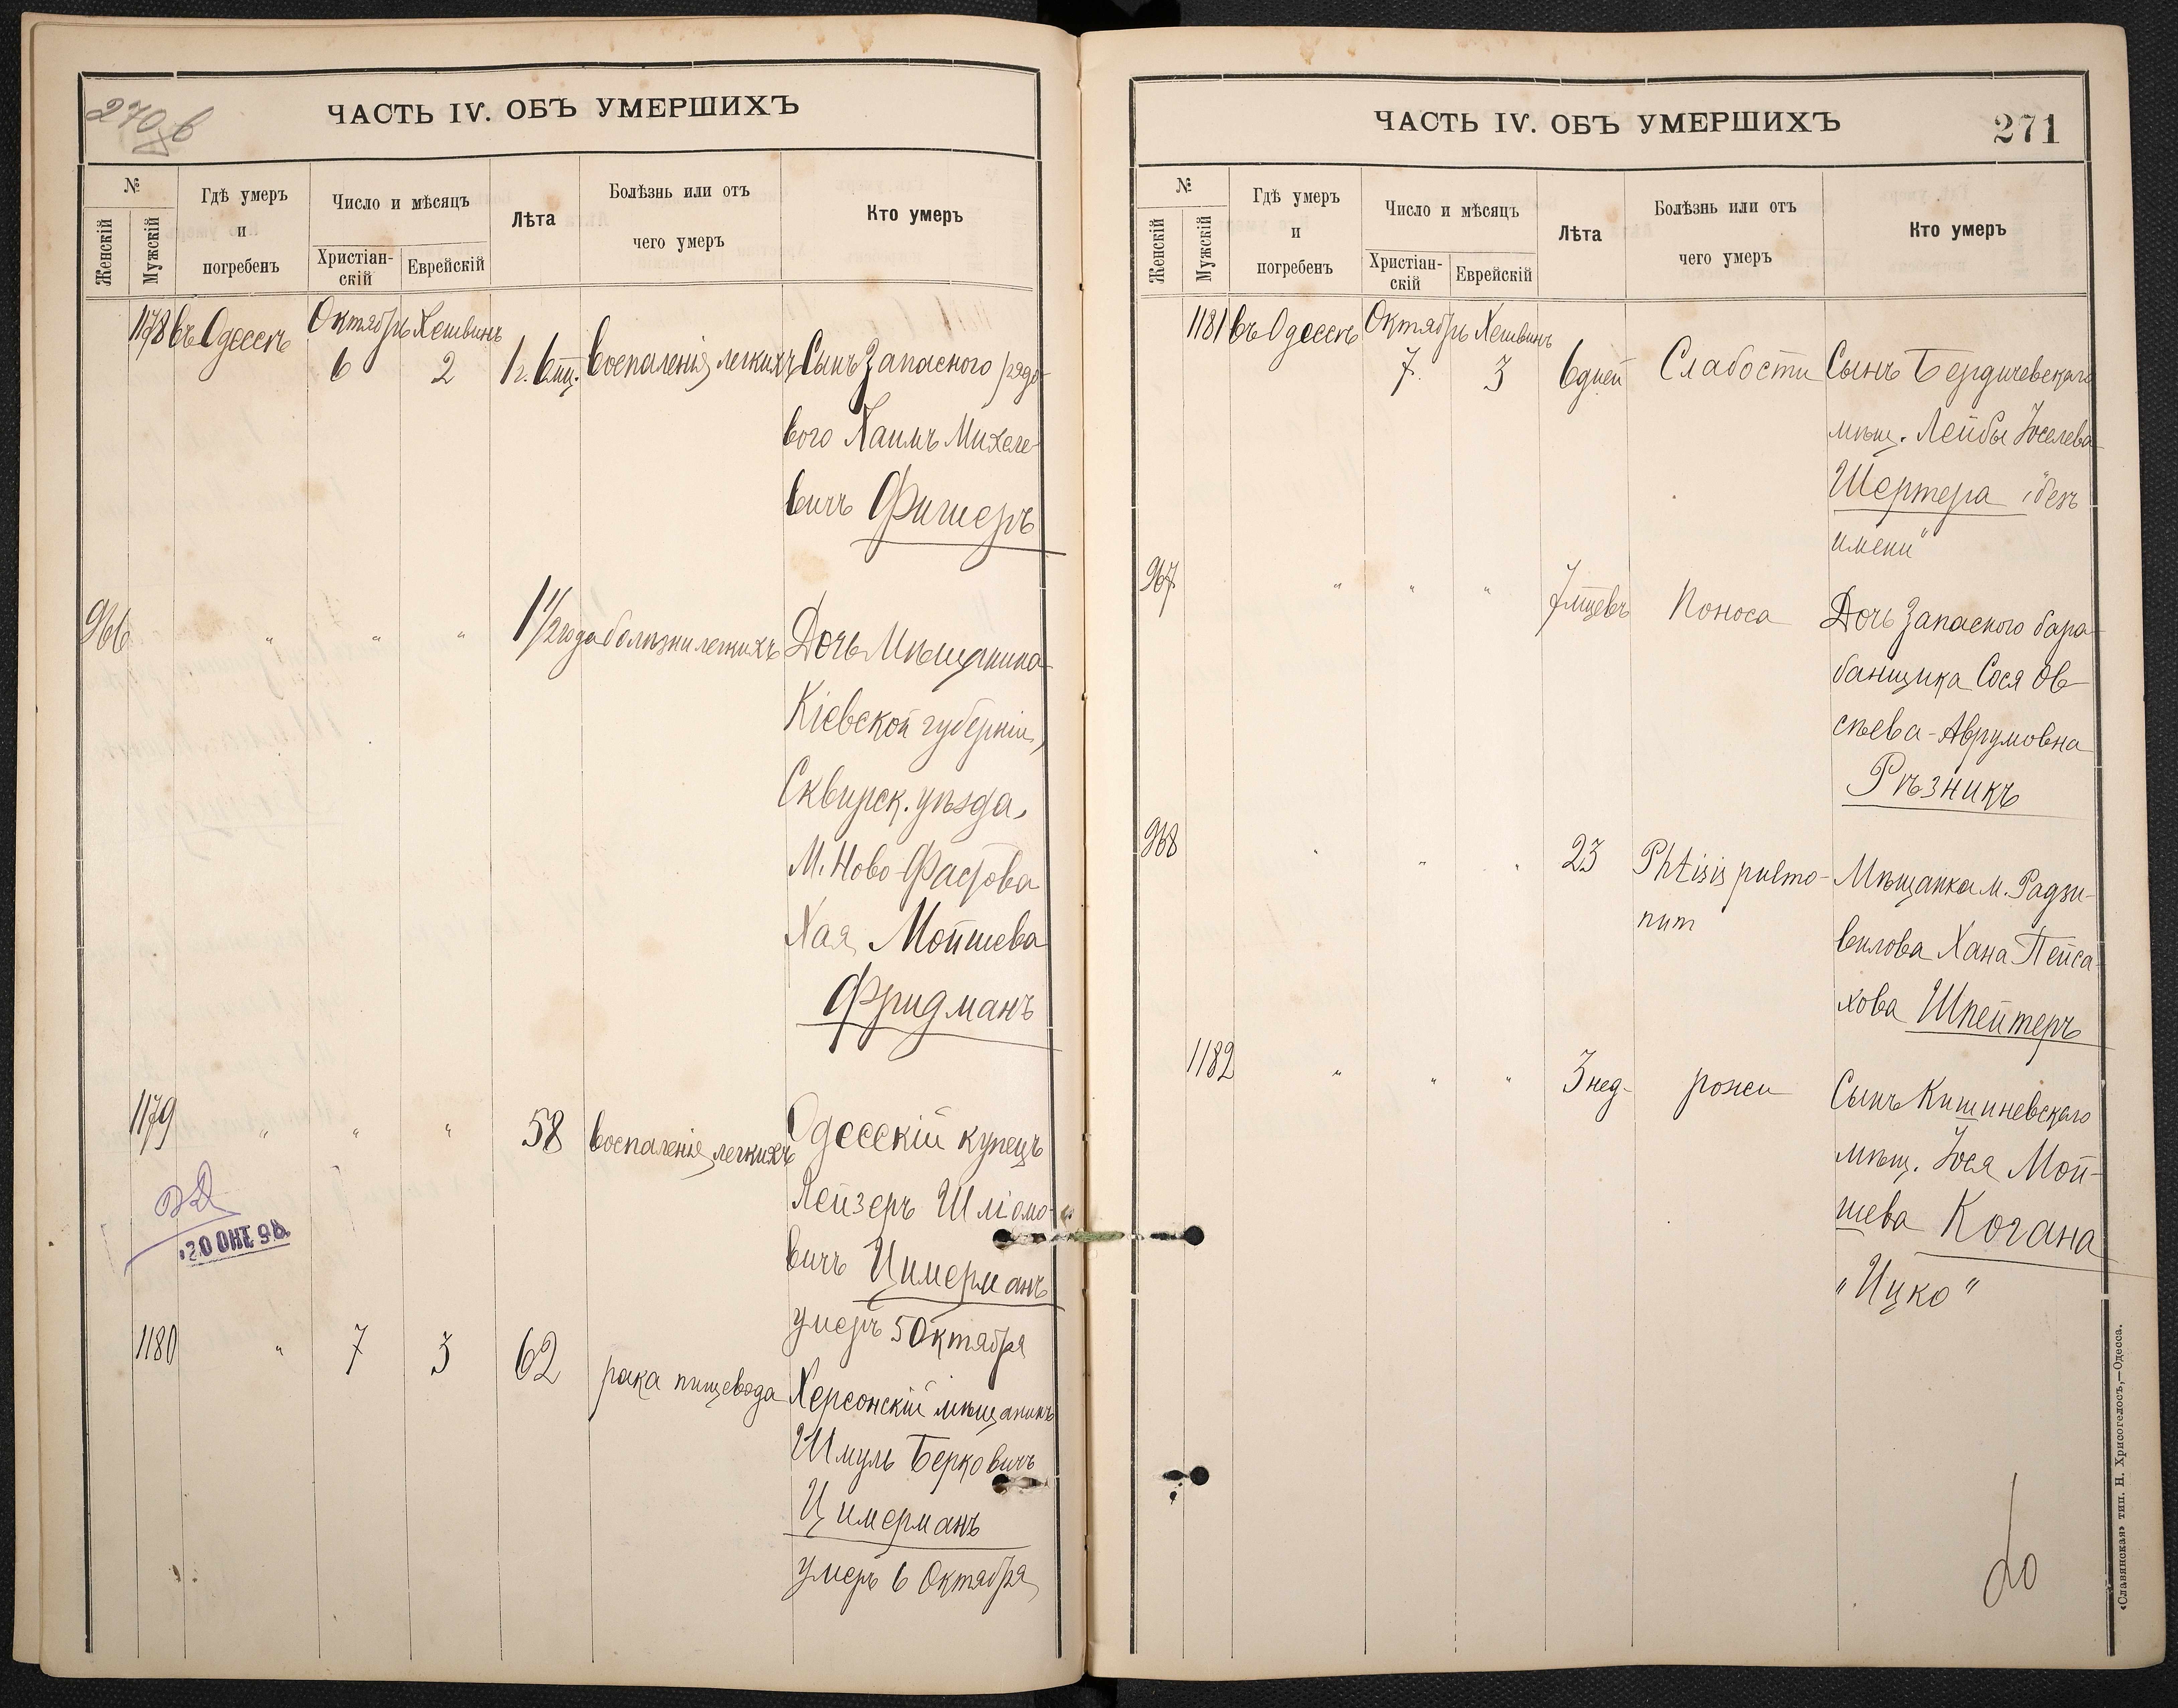 270 об
ЧАСТЬ IV. ОБЪ УМЕРШИХЪ
№
Женскій
Мужскій
Гдѣ умеръ
и
погребенъ
Число и мѣсяцъ
Христіан-
скій
Еврейскій
Лѣта
Болѣзнь или отъ
чего умеръ
Кто умеръ
1178 въ Одессѣ Октябрь Хешвинъ
6 2 1 г. 6 мц. воспаленія легкихъ Сынъ Запасного рядо-
вого Хаимъ Михеле-
вичъ Фишеръ
966 " " " 1 1/2 года болѣзни легкихъ Дочь Мѣщанина
Кіевской губерніи,
Сквирск. уѣзда,
М. Ново-Фастова
Хая Мойшева
Фридманъ
1179 " " " 58 воспаленія легкихъ Одесскій купецъ
Лейзеръ Шліомо-
вичъ Цимерманъ
умеръ 5 Октября
20 ОКТ 98.
1180 " 7 3 62 рака пищевода Херсонскій мѣщанинъ
Шмуль Берковичъ
Цимерманъ
умеръ 6 Октября
ЧАСТЬ IV. ОБЪ УМЕРШИХЪ
271
№
Женскій
Мужскій
Гдѣ умеръ
и
погребенъ
Число и мѣсяцъ
Христіан-
скій
Еврейскій
Лѣта
Болѣзнь или отъ
чего умеръ
Кто умеръ
1181 въ Одессѣ Октябрь Хешвинъ
7 3 6 дней Слабости Сынъ Бердичевскаго
мѣщ. Лейбы Іоселева
Шертера "безъ
имени"
967 " " " 7 мцевъ Поноса Дочь Запасного бара-
банщика Сося Ов-
сѣева-Аврумовна
Рѣзникъ
968 " " " 23 Phtisis pulmo- Мѣщанка м. Радзи-
num
вилова Хана Пейса-
хова Шпейтеръ
1182 " " " 3 нед. рожи Сынъ Кишиневскаго
мѣщ. Іося Мой-
шева Когана
"Ицко"
«Славянская» тип. Н. Хрисогелосъ,—Одесса.